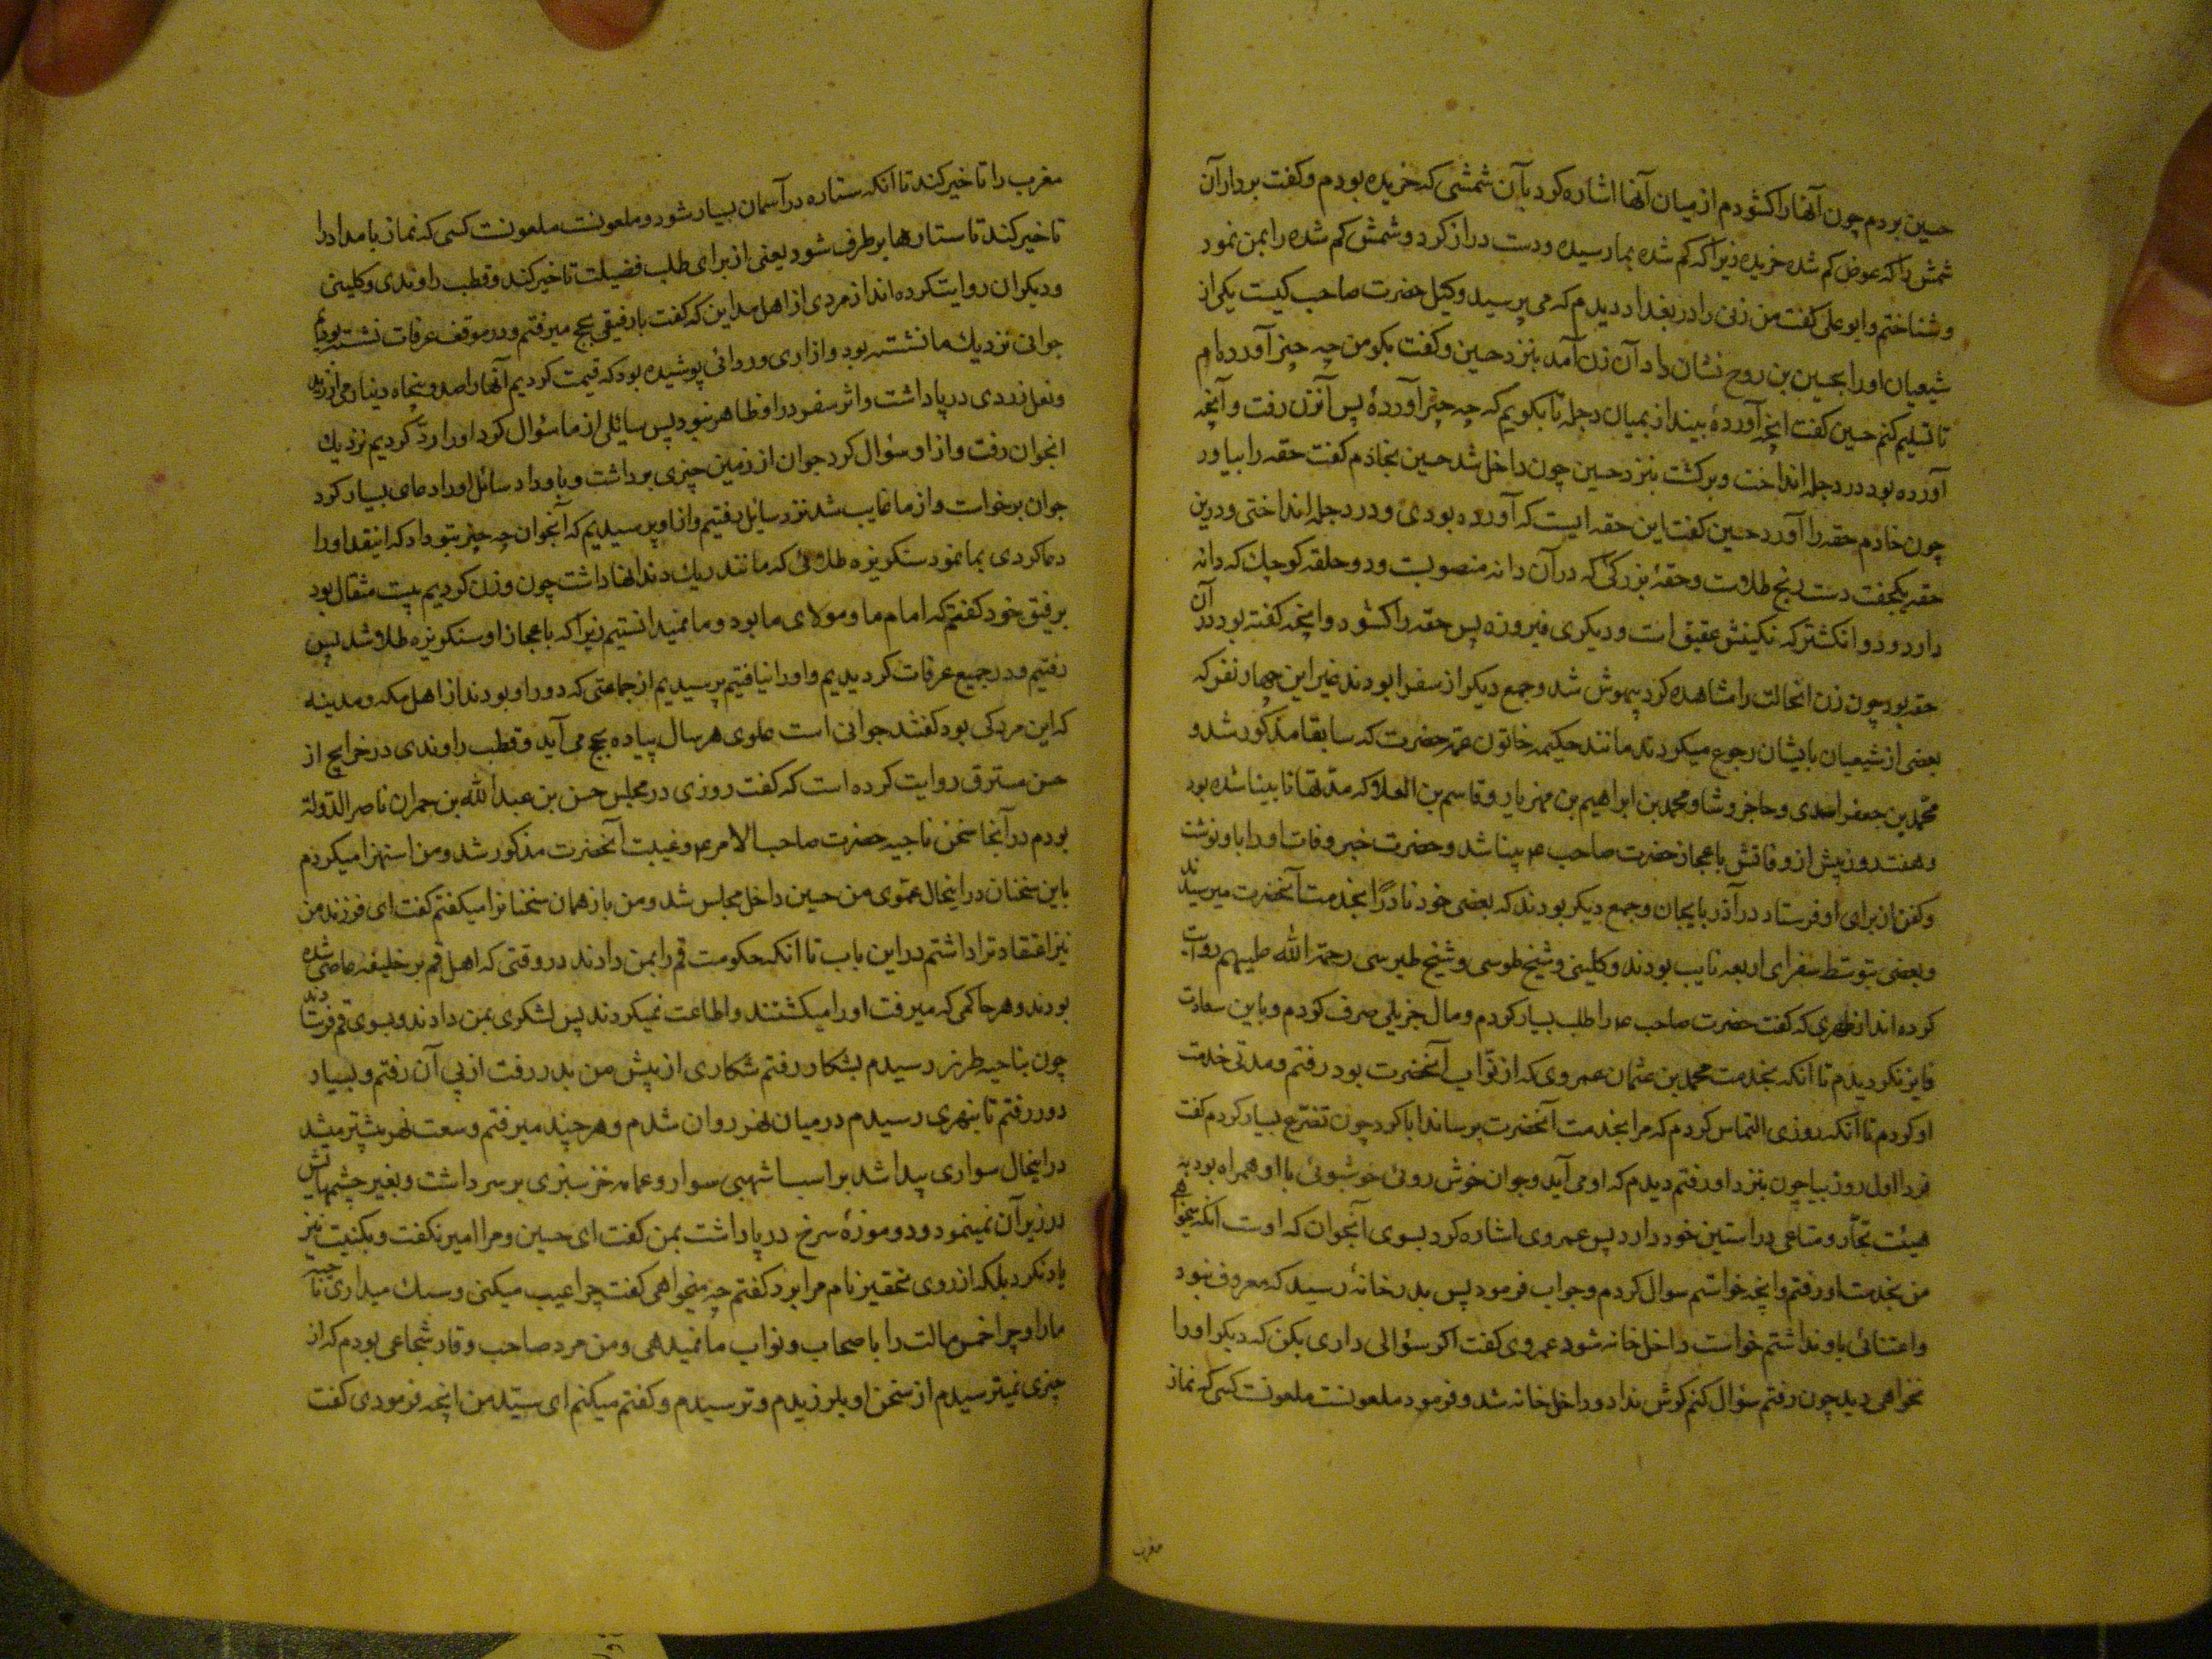 حسین بردم چون آنها را کشودم از میان آنها اشاره کرد بآن شمشی که خریده بودم و کفت بردار آن
شمش را که عوض کم شده خریده زیرا که کم شده بما رسیده و دست دراز کرد و شمش کم شده را بمن نمود
و شناختم و ابو علی کفت من زنی را در بغداد دیدم که می پرسید وکیل حضرت صاحب کیست یکی از
شیعیان او را بحسین بن روح نشان داد آن زن آمد بنزد حسین و کفت بکو من چه چیز آورده ام
تا تسلیم کنم حسین کفت انچه آوردهٔ بینداز بمیان دجله تا بکویم که چه چیز آوردهٔ پس آنزن رفت و آنچه
آورده بود در دجله انداخت و برکشت بنزد حسین چون داخل شد حسین بخادم کفت حقه را بیاور
چون خادم حقه را آورد حسین کفت این حقه ایست که آورده بودی و در دجله انداختی و درین
حقه یکجفت دست رنج طلاست و حقهٔ بزرکی که در آن دانه منصوبست و دو حلقه کوچک که دانه
دارد و دو انکشتر که نکینش عقیق است و دیکری فیروزه پس حقه را کشود و انچه کفته بود در آن
حقه بود چون زن انحالت را مشاهده کرد بیهوش شد و جمع دیکر از سفرا بودند غیر این چهار نفر که
بعضی از شیعیان بایشان رجوع میکردند مانند حکیمه خاتون عمه حضرت که سابقا مذکور شد و
محمد بن جعفر اسدی و حاجز وشا و محمد بن ابراهیم بن مهزیار و قاسم بن العلا که مدتها نابینا شده بود
و هفت روز پیش از وفاتش باعجاز حضرت صاحب عم بینا شد و حضرت خبر وفات او را باو نوشت
و کفن از برای او فرستاد در آذربایجان و جمع دیکر بودند که بعضی خود نادرًا بخدمت آنحضرت میرسیدند
و بعضی بتوسط سفرای اربعه نایب بودند و کلینی و شیخ طوسی و شیخ طبرسی رحمة الله علیهم روایت
کرده اند از زهری که کفت حضرت صاحب عم را طلب بسیار کردم و مال جزیلی صرف کردم و باین سعادت
فایز نکردیدم تا آنکه بخدمت محمد بن عثمان عمروی که از نواب آنحضرت بود رفتم و مدتی خدمت
او کردم تا آنکه روزی التماس کردم که مرا بخدمت آنحضرت برساند ابا کرد چون تضرع بسیار کردم کفت
فردا اول روز بیا چون بنزد او رفتم دیدم که او می آید و جوان خوش روئی خوشبوئی با او همراه بود به
هیئت تجار و متاعی در استین خود دارد پس عمروی اشاره کرد بسوی آنجوان که اوست آنکه میخواهی
من بخدمت او رفتم و انچه خواستم سوال کردم و جواب فرمود پس بدر خانهٔ رسید که معروف نبود
و اعتنائی باو نداشتم خواست داخل خانه شود عمروی کفت اکر سؤالی داری بکن که دیکر او را
نخواهی دید چون رفتم سؤال کنم کوش نداد و داخل خانه شد و فرمود ملعونست ملعونست کسی که نماز
مغرب
مغرب را تاخیر کند تا آنکه ستاره در آسمان بسیار شود و ملعونست ملعونست کسی که نماز بامداد را
تاخیر کند تا ستارها بر طرف شود یعنی از برای طلب فضیلت تاخیر کند و قطب راوندی و کلینی
و دیکران روایت کرده اند از مردی از اهل مداین که کفت با رفیقی بحج میرفتم و در موقف عرفات نشسته بودیم
جوانی نزدیک ما نشسته بود و ازاری و ردائی پوشیده بود که قیمت کردیم آنها را صد و پنجاه دینار می ارزید
و نعل زردی در پا داشت و اثر سفر در او ظاهر نبود پس سائلی از ما سؤال کرد او را رد کردیم نزدیک
انجوان رفت و از او سؤال کرد جوان از زمین چیزی برداشت و باو داد سائل او را دعای بسیار کرد
جوان برخواست و از ما غایب شد نزد سائل رفتیم و از او پرسیدیم که آنجوان چه چیز بتو داد که اینقدر او را
دعا کردی بما نمود سنکریزه طلائی که مانند ریک دندانها داشت چون وزن کردیم بیست مثقال بود
برفیق خود کفتم که امام ما و مولای ما بود و ما نمیدانستیم زیرا که باعجاز او سنکریزه طلا شد پس
رفتیم و در جمیع عرفات کردیدیم و او را نیافتیم پرسیدیم از جماعتی که دور او بودند از اهل مکه و مدینه
که این مرد کی بود کفتند جوانی است علوی هر سال پیاده بحج می آید و قطب راوندی در خرایج از
حسن مسترق روایت کرده است که کفت روزی در مجلس حسن بن عبد الله بن حمران ناصر الدوله
بودم در آنجا سخن ناحیه حضرت صاحب الامر عم و غیبت آنحضرت مذکور شد و من استهزا میکردم
باین سخنان در اینحال عموی من حسین داخل مجلس شد و من باز همان سخنانرا میکفتم کفت ای فرزند من
نیز اعتقاد ترا داشتم در این باب تا آنکه حکومت قم را بمن دادند در وقتی که اهل قم بر خلیفه عاصی شده
بودند و هر حاکمی که میرفت او را میکشتند و اطاعت نمیکردند پس لشکری بمن دادند و بسوی قم فرستادند
چون بناحیه طرز رسیدم بشکار رفتم شکاری از پیش من بدر رفت از پی آن رفتم و بسیار
دور رفتم تا بنهری رسیدم در میان نهر روان شدم و هر چند میرفتم وسعت نهر بیشتر میشد
در اینحال سواری پیدا شد بر اسب شهبی سوار و عمامه خز سبزی بر سر داشت و بغیر چشمهایش
در زیر آن نمینمود و دو موزهٔ سرخ در پا داشت بمن کفت ای حسین و مرا امیر نکفت و بکنیت نیز
یاد نکرد بلکه از روی تحقیر نام مرا برد کفتم چه میخواهی کفت چرا عیب میکنی و سبک میداری ناحیه
ما را و چرا خمس مالت را باصحاب و نواب ما نمیدهی و من مرد صاحب وقار شجاعی بودم که از
چیزی نمیترسیدم از سخن او بلرزیدم و ترسیدم و کفتم میکنم ای سید من انچه فرمودی کفت